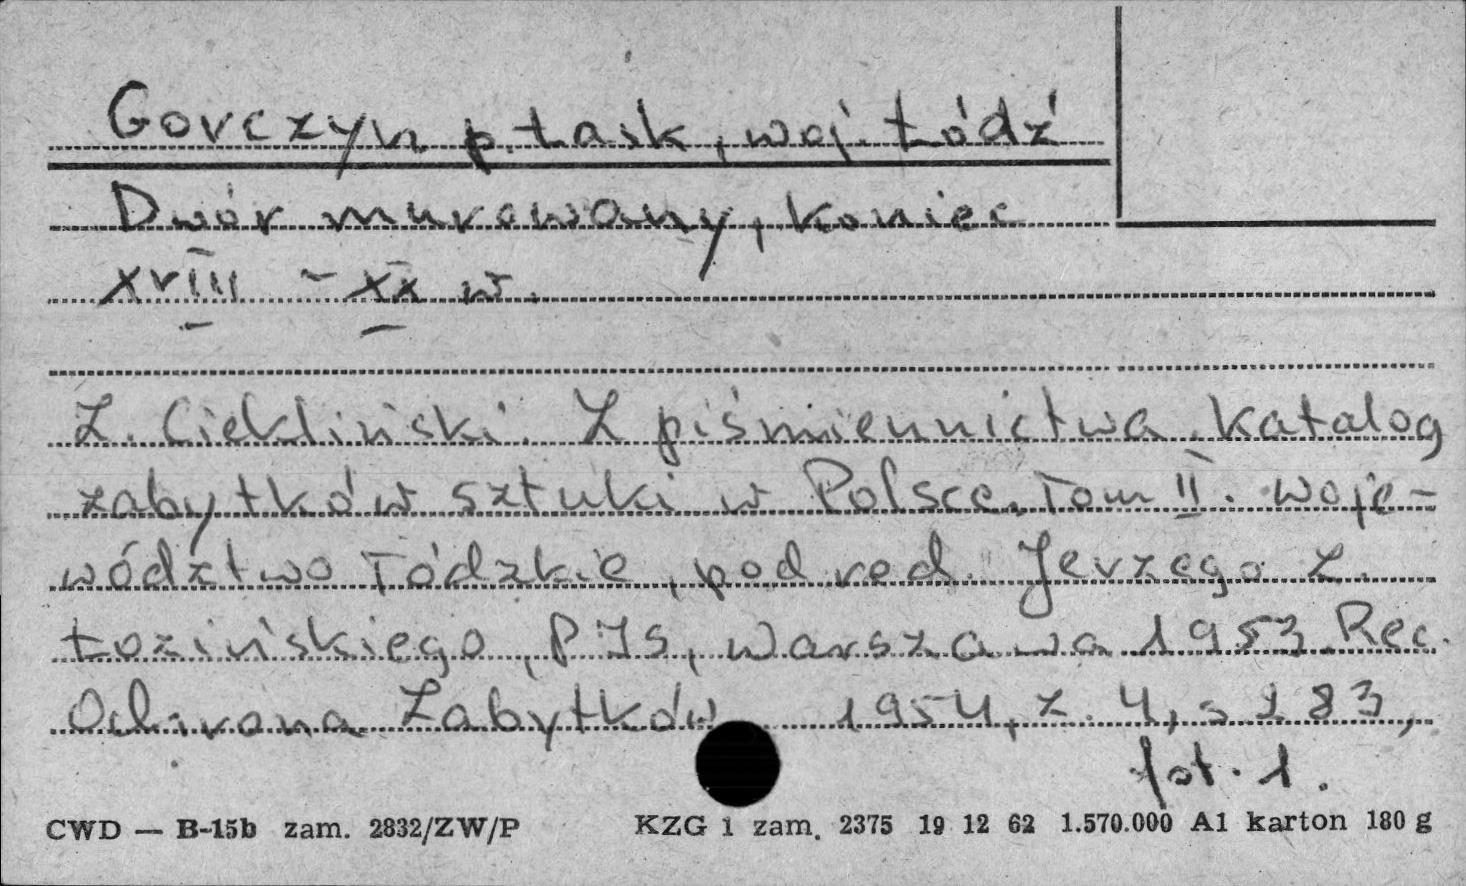 Gorczyn p. Łask, woj. Łódź
Dwór murowany, koniec
XVIII - XX w.
Z. Ciekliński. Z piśmiennictwa. Katalog
zabytków sztuki w Polsce. Tom II. Woje-
wództwo Łódzkie, pod red. Jerzego Z.
Łozińskiego, PIS, Warszawa 1953. Rec.
Ochrona Zabytków 1954, z. 4, s 283,
fot. 1.
CWD — B-15b zam. 2832/ZW/P KZG 1 zam. 2375 19 12 62 1.570.000 A1 karton 180 g